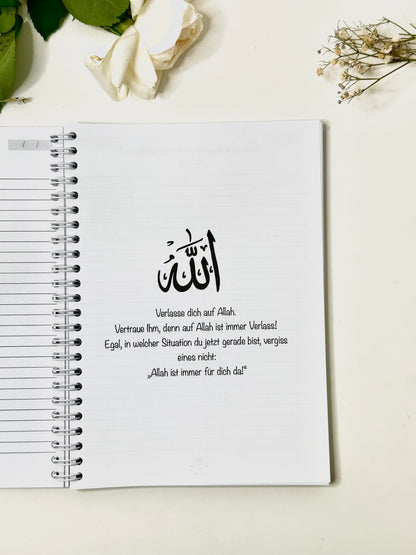 / /
الله
Verlasse dich auf Allah.
Vertraue Ihm, denn auf Allah ist immer Verlass!
Egal, in welcher Situation du jetzt gerade bist, vergiss
eines nicht:
„Allah ist immer für dich da!“